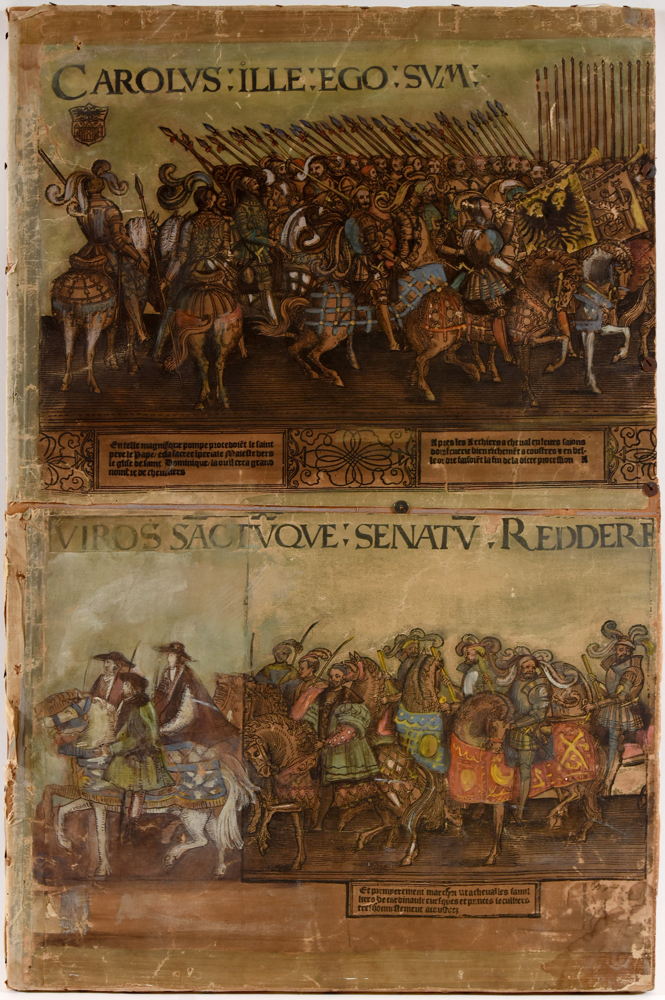 CAROLVS : ILLE : EGO : SVM :
En telle magnifique pompe procedoiẽt le saint
pere le Pape, et la sacree Maieste vers
le glise de saint Dominique, la ou il crea grand
nombre de chevaliers
Apres les Archiers a cheval en leurs saions
dorfeverie bien richemẽt acoustres en bel-
le ordre faisoiẽt la fin de la dicte procession
VIROS SÃCTVQVE : SENATV̄ : REDDERE
Et premyerement marchoiẽt a cheval les famil
liers de cardinaulx evesques et princes seculiers
tres honnestement